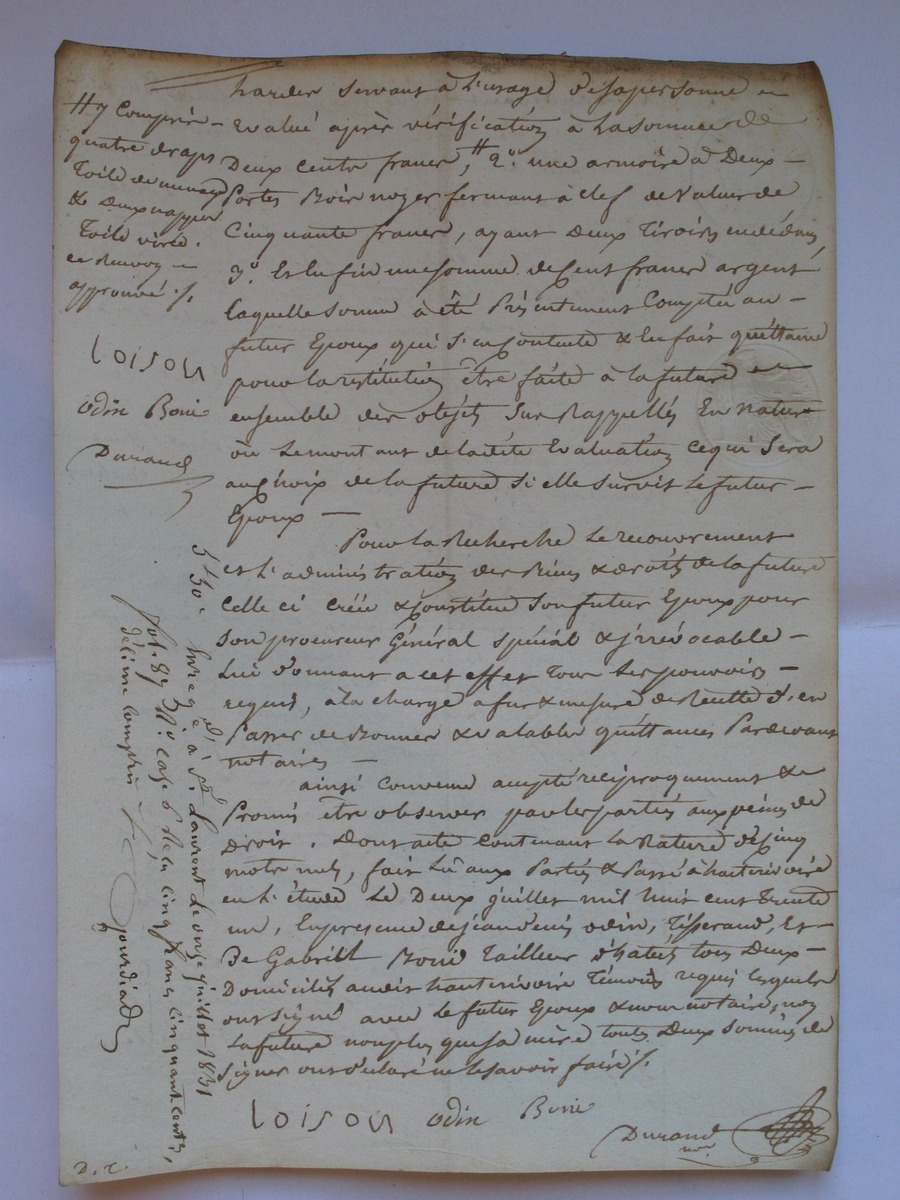 hardes servant à L'usage de sa personne
Evalué après vérification à La somme de
Deux cents francs, # 2° une armoire à Deux
Portes Bois noyer fermant à clef de valeur de
Cinquante francs, ayant Deux Tiroirs en dedans,
3° Et Enfin une somme de Cent francs argent
laquelle somme à été Présentement Comptée au
futur Epoux qui s'en Contente & En fait quittance
pour la restitution être faite à la future
ensemble des objets sus Rappellés En nature
ou Le montant de la dite Evaluation ce qui sera
au choix de la future si elle survit Le futur
Epoux
Pour la Recherche Le recouvrement
et L'administration des Biens & droits de la future
Celle ci Crée & Constitue son futur Epoux pour
son procureur Général spécial & irrévocable
Lui donnant a cet effet Tous Les pouvoirs
requis, à la charge a fur & mesure de Recette d'en
Passer de Bonnes & valables quittances Pardevant
notaires
ainsi Convenu accepté réciproquement &
Promis être observer par les parties aux peines de
Droit. Dont acte Contenant La Rature de Cinq
mots nuls, fait Lû aux Parties & Passé à hauterivoire
en L'étude Le Deux juillet mil huit cent Trente
un, En présence de jean denis odin, Tisserand, Et
De Gabriell Bonie Tailleur d'habits tous Deux
Domiciliés audit hauterivoire Témoins requis lesquels
ont signé avec Le futur Epoux & nous notaire, non
La future non plus que sa mère toutes Deux sommées de
signer ont déclaré ne le savoir faire ./.
Loison odin Bonie
Durand
nore
# y Compris
quatre draps
Toile de
& Deux nappes
Toile
ce Renvoy
approuvé ./.
Loison
odin Bonie
Durand
5f 50c Enregé à St Laurent Le onze juillet 1831
fol. 87 Vo case 6 Reçu cinq francs cinquante centes,
décime compris ./.
D. C.